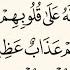 ـهُ عَلَىٰ قُلُوبِهِمْ
ـمْ عَذَابٌ عَظِيـ